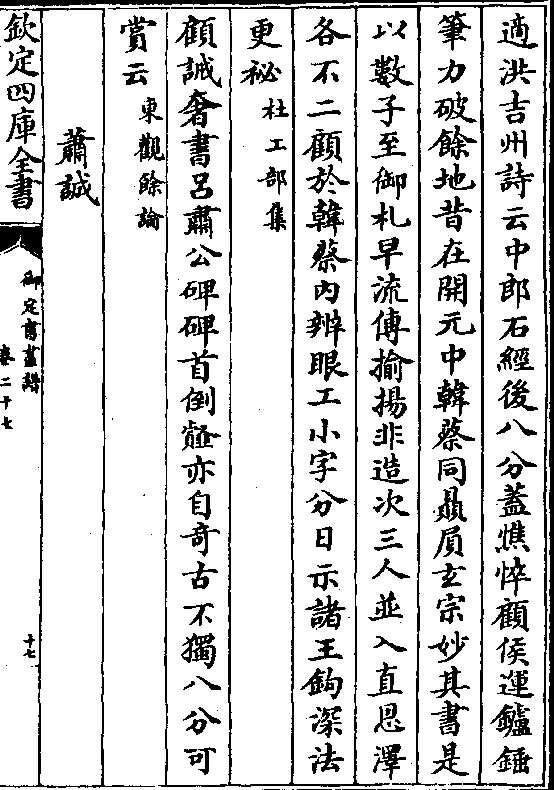 適洪吉州詩云中郎石經後八分蓋憔悴顧侯運鑪錘
筆力破餘地昔在開元中韓蔡同贔屓玄宗妙其書是
以數子至御札早流傳揄揚非造次三人並入直恩澤
各不二顧於韓蔡内辨眼工小字分日示諸王鉤深法
更祕杜工部集
顧誡奢書吕肅公碑碑首倒薤亦自奇古不獨八分可
賞云東觀餘論
蕭誠
欽定四庫全書
御定書畫譜
卷二十七
十七